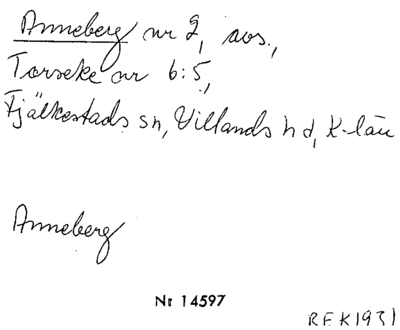 Anneberg nr 2, avs.,
Torseke nr 6:5,
Fjälkestads sn, Villands hd, K-län
Anneberg
Nr 14597
REK1931